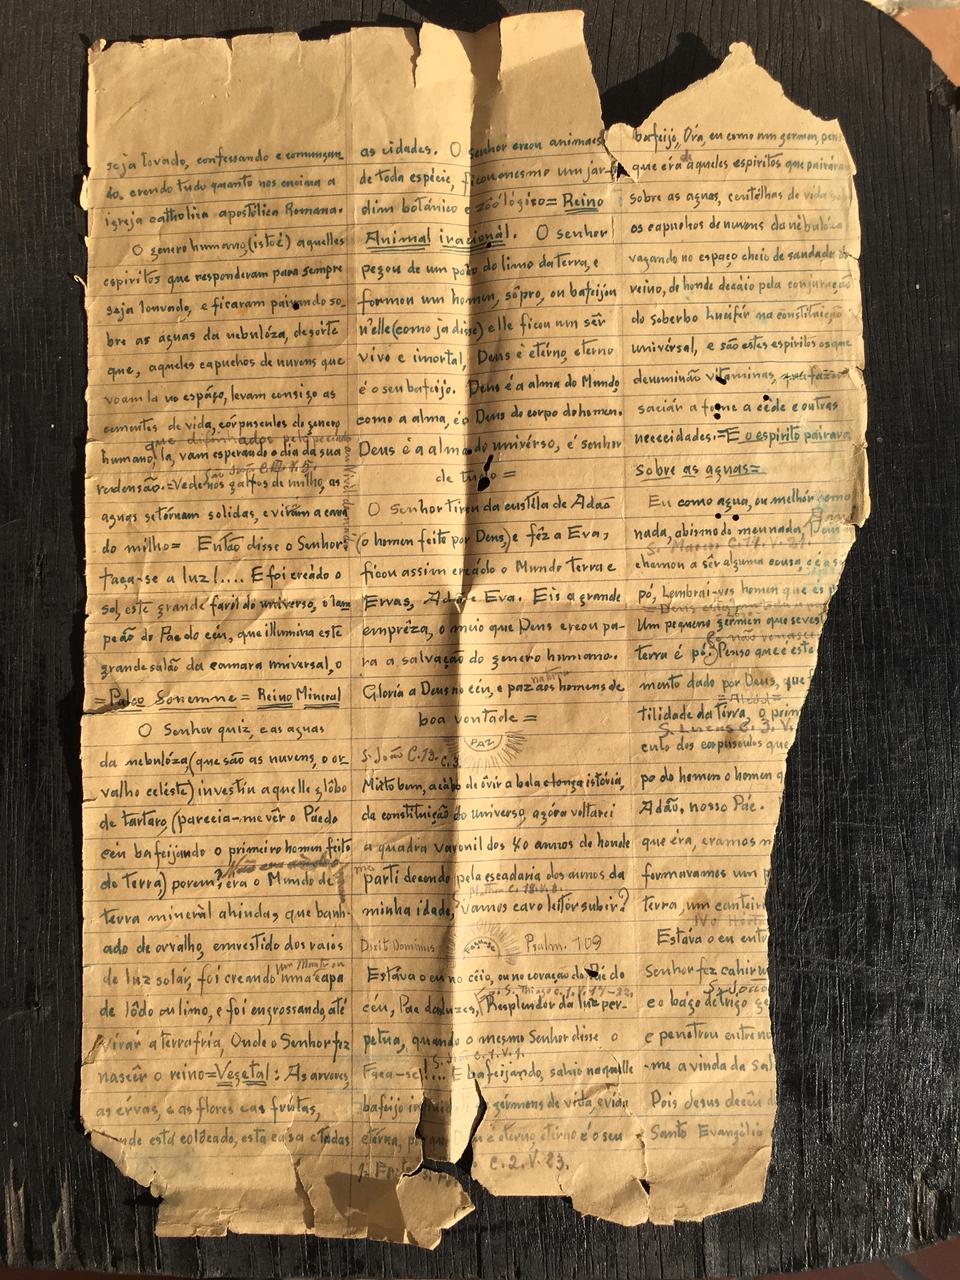 seja lovado, confessando e comungan
do, crendo tudo quanto nos ensina a
igreja catholica apostólica Romana.
O genero humano, (isto é) aquelles
espiritos que responderam para sempre
seja louvado, e ficaram pairando so-
bre as águas da nebulóza, desórte
que, aqueles capuchos de nuvens que
voam la no espáço, levam consigo as
cementes de vida, córpusculos do genero
que difamados pelo pecado
humano, la, vam esperando o dia da sua
São João C. V. 5.
redensão.=Vede nos galfos de milho, as
aguas se tórnam solidas, e viram a cara
do milho= Então disse o Senhor
faça-se a luz!.... E foi creádo o
sol, este grande faról do universo, o lam
peão do Pae do céu, que illumina este
grande salão da camara universal, o
=Palco Sonemne = Reino Mineral
O Senhor quiz, e as aguas
da nebulóza (que são as nuvens, o or-
valho celéste) investiu aquelle glôbo
de tartaro, (parecia-me vêr o Páe do
céu bafeijando o primeiro homen feito
do terra) porem, éra o Mundo de
terra minerál ahinda, que banh-
ado de orvalho, emvestido dos raios
de luz solár, foi creando uma capa
de lôdo ou limo, e foi engrossando, até
virár a terra fria, Onde o Senhor fez
nascêr o reino=Vegetal: As arvores,
as érvas, e as flores e as frútas,
onde está colocado, esta casa e todas
as cidades. O senhor creou animaes
de toda espécie, ficou mesmo um jar-
dim botánico e zoológico= Reino
Animal iracionál. O senhor
pegou de um do limo da terra, e
formou um homen, sôpro, ou bafeijou
n'elle (como ja disse) e elle ficou um sêr
vivo e imortal, Deus é etérno, eterno
é o seu bafeijo. Deus é a alma do Mundo
como a alma, é o Deus do corpo do homen.
Deus é a alma do univérso, é senhor
de tudo =
O Senhor tirou da custéla de Adão
(o homen feito por Deus,) e fêz a Eva,
ficou assim creádo o Mundo terra e
Ervas, Adão e Eva. Eis a grande
emprêza, o meio que Deus creou pa-
ra a salvação do genero humano.
Gloria a Deus no céu, e paz aos homens de
boa vontade =
PAZ
S. João C. 13.
Muito bem, acábo de ôvir a bela e longa istória,
da constituição do universo, agóra voltarei
a quadra varonil dos 40 annos de honde
parti decendo pela escadaria dos annos da
Matheu C. 18. V. 3.
minha idade, Vamos caro leitor subir?
Dixit Dominus Psalm. 109
Estáva o eu no céio, ou no coração do Pai do
S. Thiago C. 1. V. 17-22.
céu, Pae das luzes, (Resplendor da luz per-
petua, quando o mesmo Senhor disse o
S. João C. 1. V. 1.
Faça-se!... E bafeijando, sahio naquelle
bafeijo gérmens de vida, e vida
etérna, etérno é o seu
C. 2. V. 23.
bafeijo, Óra, eu como um germen, pens
que éra daqueles espiritos que pairáram
sobre as aguas, centêlhas de vida so
os capuchos de nuvens da nebulóza
vagando no espaço cheio de saudades do
reino, de honde decáio pela conjuração
do soberbo Lucifér na constituição
univérsal, e são estes espiritos os que
denuminão vitaminas,
saciár a fome a céde e outras
nececidades.=E o espirito pairava
sobre as aguas=
Eu como agua, ou melhór como
nada, abismo do meu nada, Deus
S. Marcos C. 14. V. 21.
chamou a sêr alguma cousa,
pó, Lembrai-vos homen que es p
Um pequeno gérmen que se ves
Se não renasce
terra é pó. Penso que é este
mento dado por Deus, que
tilidade da terra, o prim
S. Lucas C. 3. V.
culo dos corpusculos que
po do homem o homen q
Adão, nosso Páe.
que éra, eramos n
formavamos um p
terra, um canteir
No Horto
Estáva o eu ent
Senhor fez cahir u
S. João
e o bágo de trigo ge
e penetrou entre n
-me a vinda da sal
Pois Jesus deceu d
Santo Evangélio